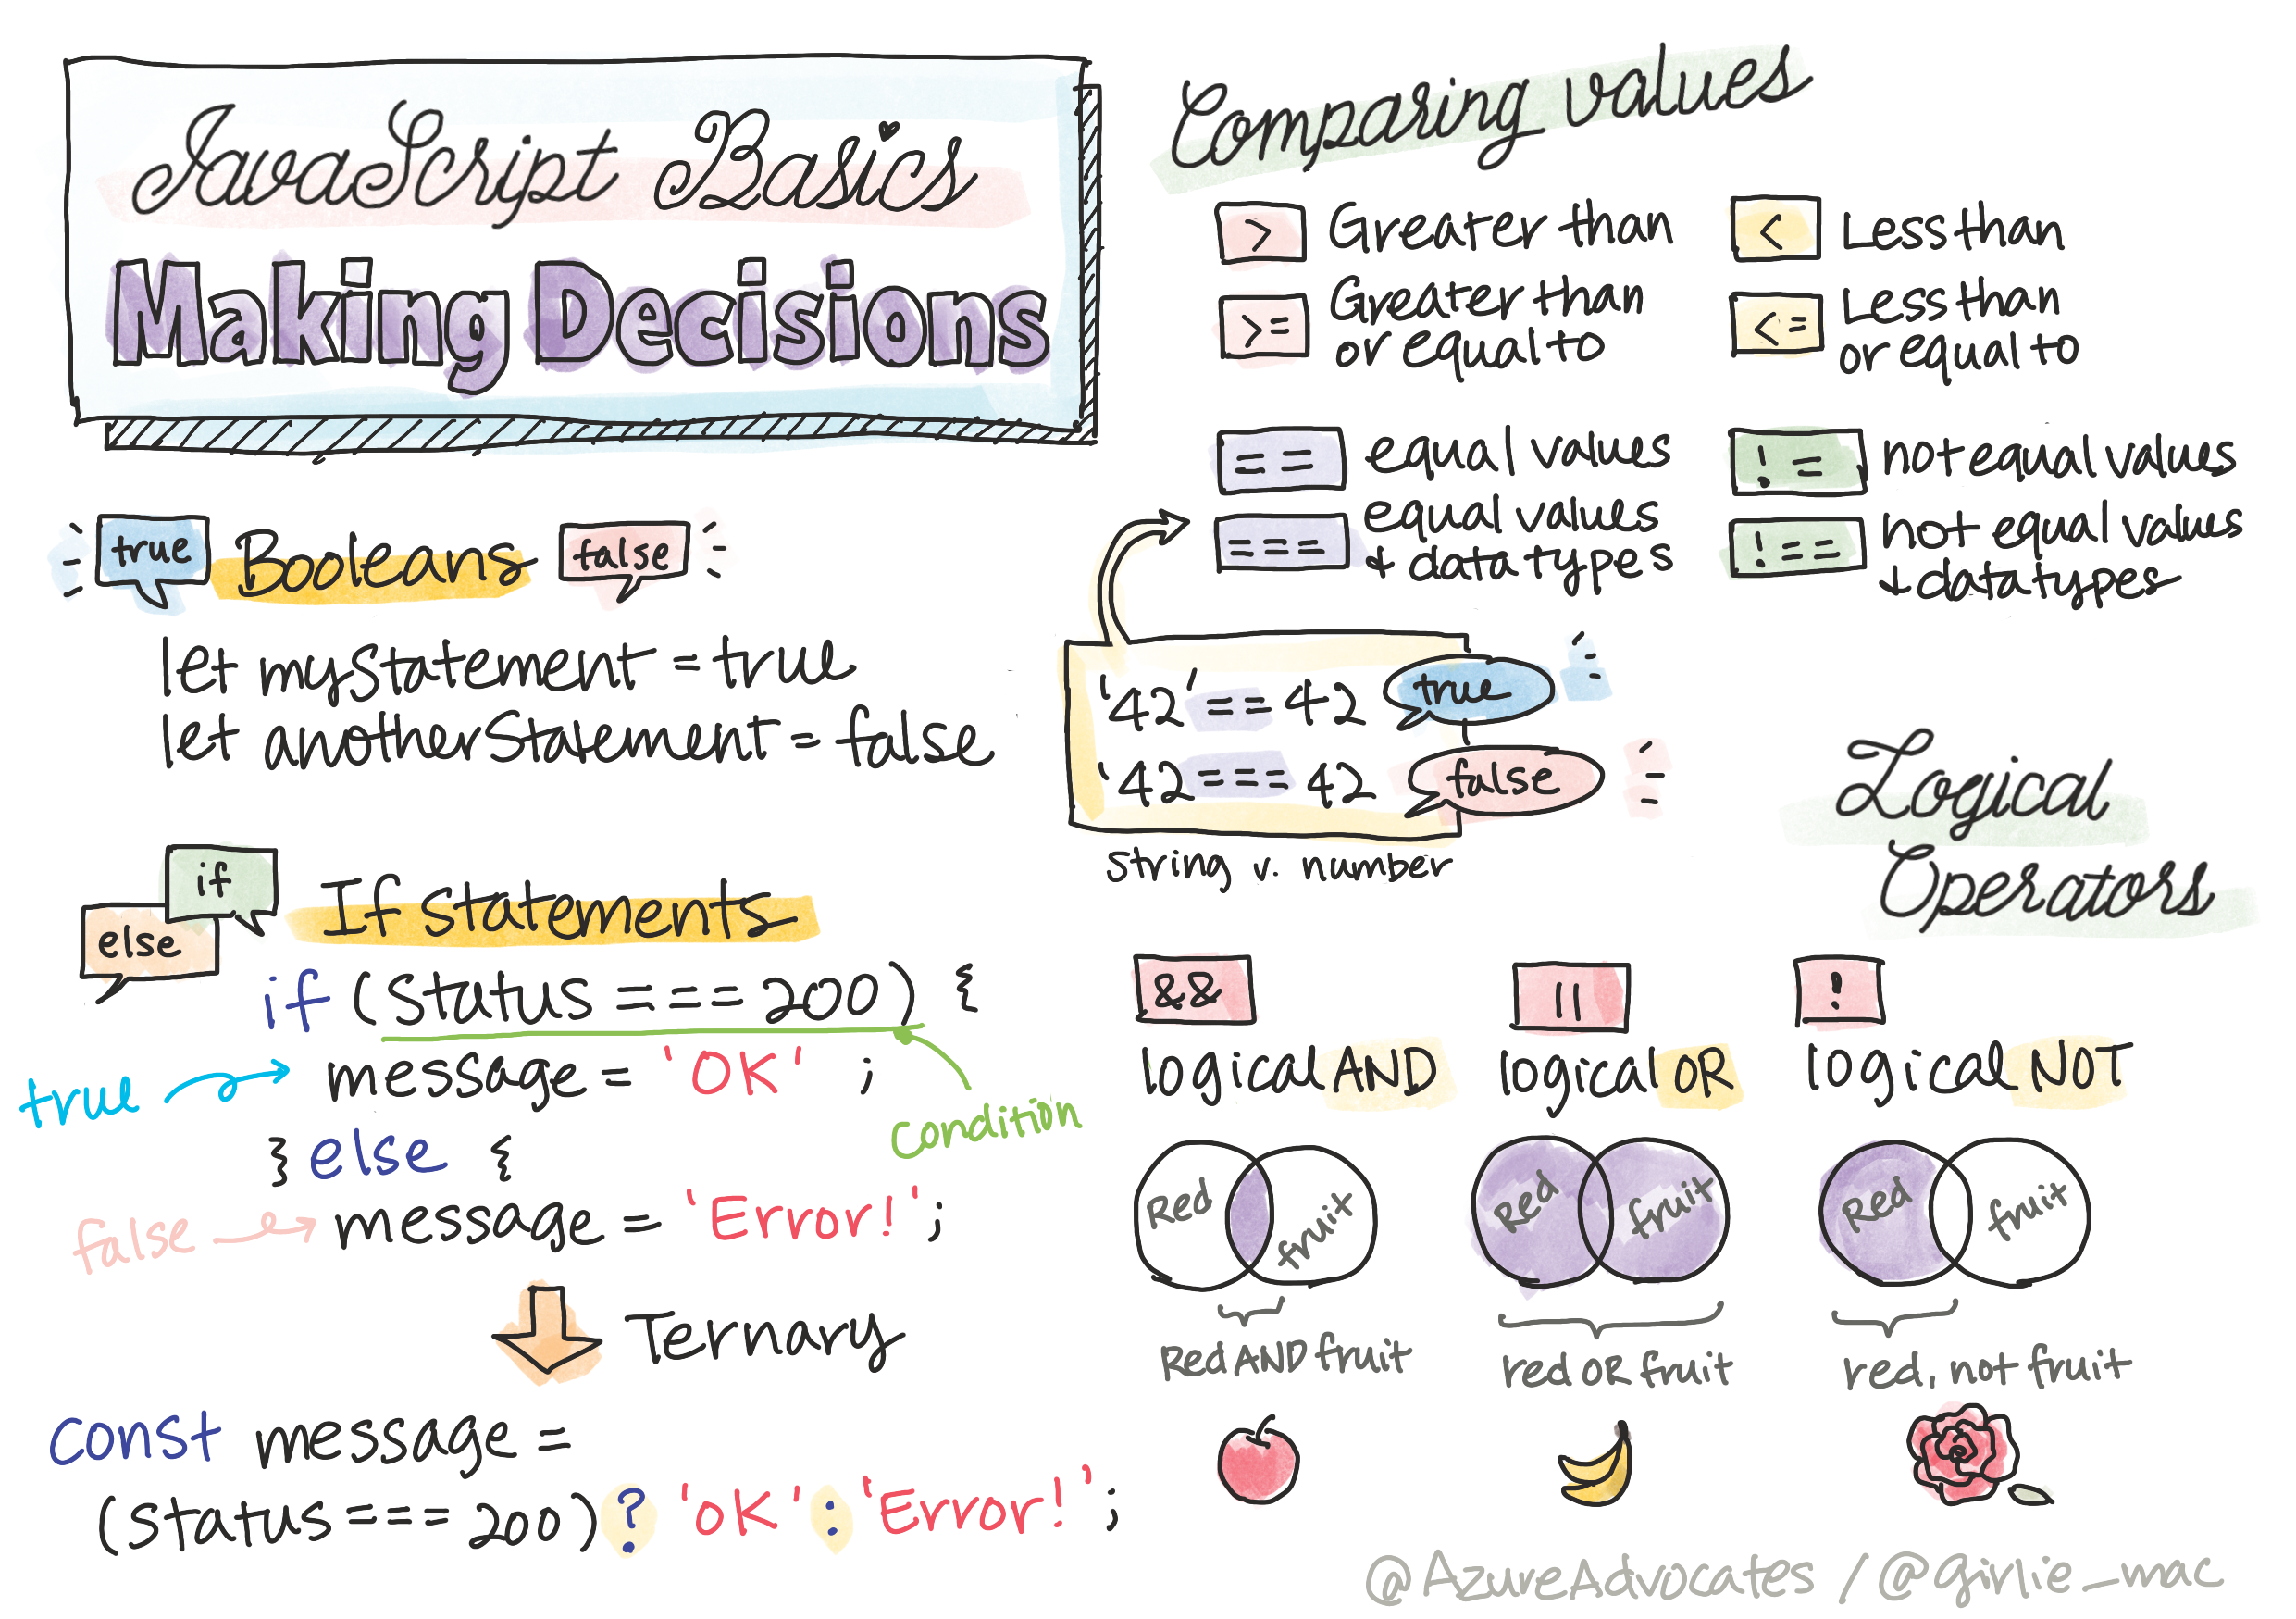 JavaScript Basics
Making Decisions
true
Booleans
false
let myStatement = true
let anotherStatement = false
if
else
If statements
if (status === 200) {
true
message = 'OK' ;
condition
} else {
false
message = 'Error!';
Ternary
const message =
(status === 200) ? 'OK' : 'Error!';
Comparing values
> Greater than
< Less than
>= Greater than
or equal to
<= Less than
or equal to
== equal values
!= not equal values
=== equal values
+ data types
!== not equal values
+ data types
'42' == 42 true
'42 === 42 false
string v. number
Logical
Operators
&&
logical AND
||
logical OR
!
logical NOT
Red
fruit
Red AND fruit
Red
fruit
red OR fruit
Red
fruit
red, not fruit
@AzureAdvocates / @girlie_mac